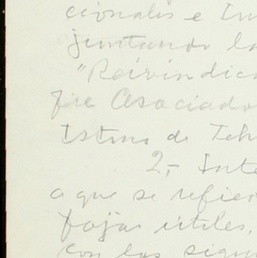 cionales e In
juntando la
"Reivindica
fre Asociado
Istmo de Teh
2,- Inte
a que se refier
fojas útiles,
con las sigui